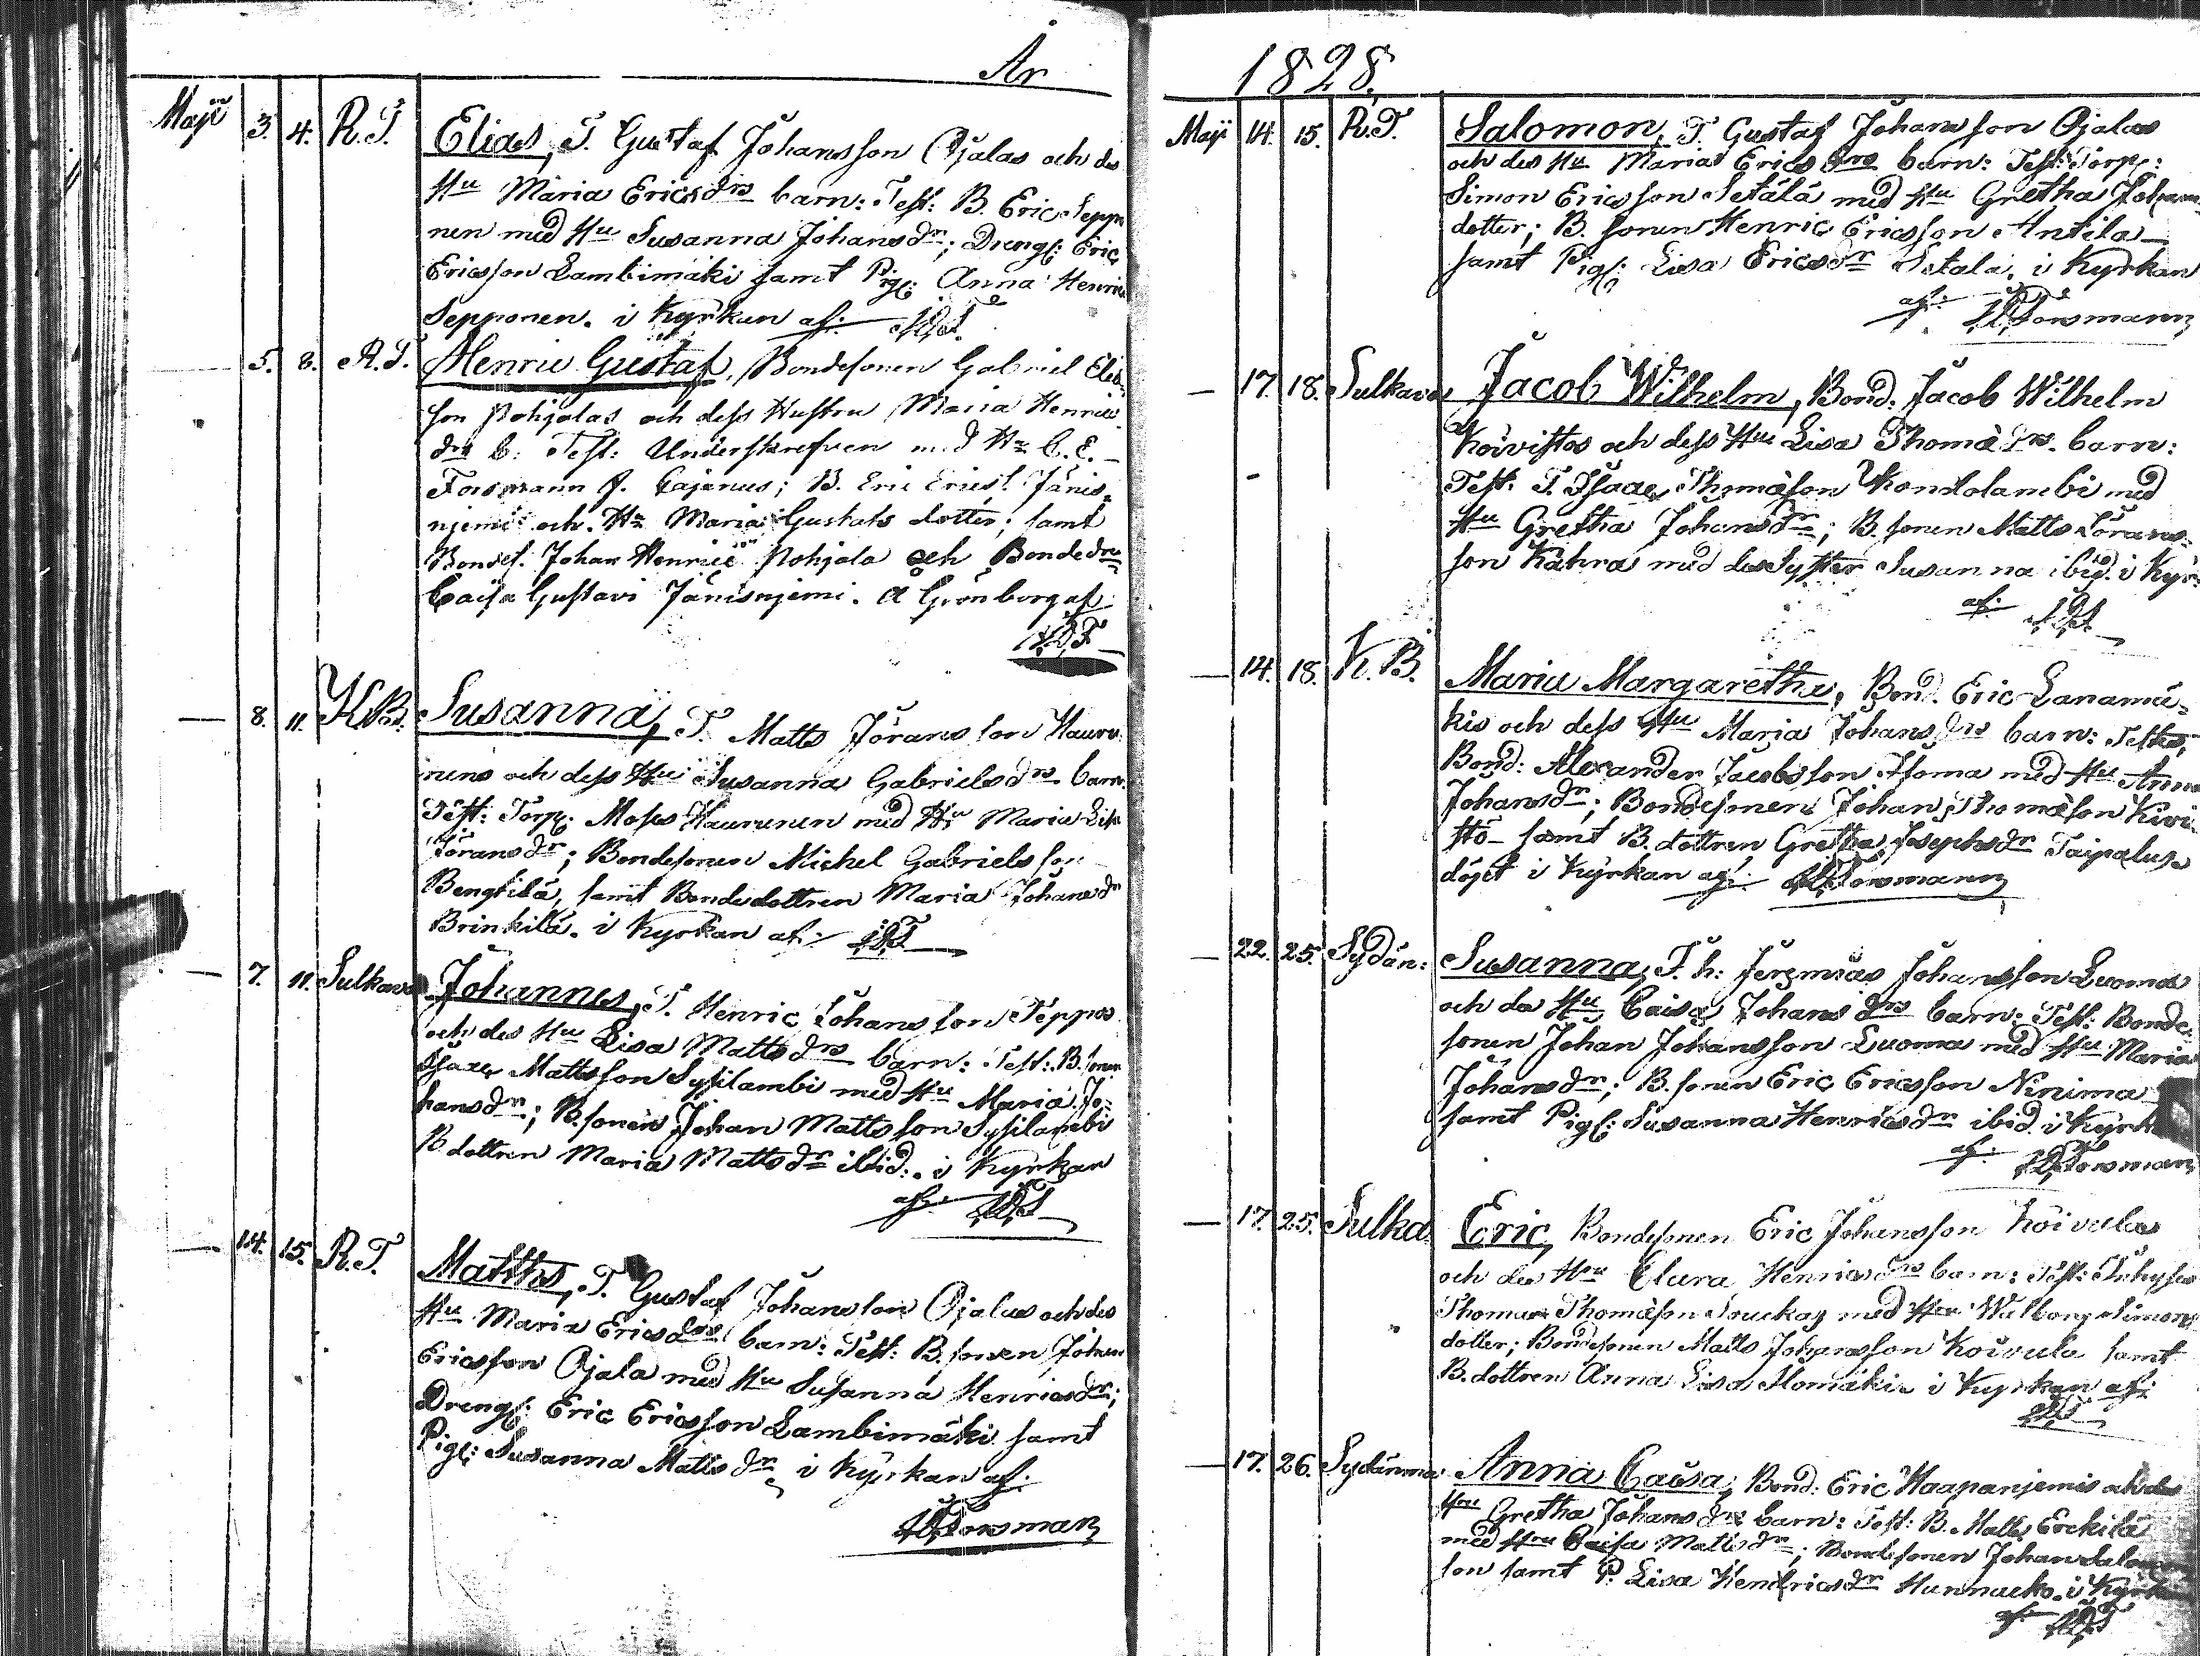 År
Maji 3. 4. R.T. Elias, T. Gustaf Johansson Ojalas och des
Hu Maria Ericsdrs barn: Test: B. Eric Seppo
nen med Hu Susanna Johansdr; Drengs: Eric
Ericsson Lambimäki samt Pigs: Anna Henrics
Sepponen. i Kyrkan af:
— 5. 8. R.T. Henric Gustaf, Bondesonen Gabriel Elis-
son Pohjolas och dess Hustru Maria Henrics
drs b: Test: Underskrefven med Hu C. E.
Forsmann f. Cajanus; B. Eric Erics. Jänis-
njemi och Hu Maria Gustafs dotter; samt
Bondes. Johan Henric Pohjola och Bondedrn
Caisa Gustavi Jänisnjemi. å Grönborg af
— 8. 11. K.B. Susanna, T. Matts Jörans son Hauru-
nens och dess Hu Susanna Gabrielsdrs barn.
Test: Torp: Moses Haurunen med Hu Maria Lisa
Jöransdr; Bondesonen Michel Gabrielsson
Bengtilä, samt Bondedottren Maria Johansdr
Brinkilä. i Kyrkan af:
— 7. 11. Sulkava Johannes, T. Henric Johansson Teppos
och des Hu Lisa Mattsdrs barn: Test: B. sonen
Isaac Mattsson Sysilambi med Hu Maria Jo-
hansdr; B. sonen Johan Mattsson Sysilambi
B. dottren Maria Mattsdr ibid: i Kyrkan
af:
— 14. 15. R.T. Matths, T. Gustaf Johansson Ojalas och des
Hu Maria Ericsdrs barn: Test: B. sonen Johan
Ericsson Ojala med Hu Susanna Henricsdr;
Drengs: Eric Ericsson Lambimäki samt
Pigs: Susanna Mattsdr, i Kyrkan af:
Forsman
1828.
Maji 14. 15. R.T. Salomon, T. Gustaf Johansson Ojalas
och des Hu Maria Ericsdrs barn: Test: Torp:
Simon Ericsson Setälä med Hu Gretha Johans-
dotter; B. sonen Henric Ericsson Antila
samt Pigs: Lisa Ericsdr Setälä. i Kyrkan
af: Forsmann
— 17. 18. Sulkava Jacob Wilhelm, Bond: Jacob Wilhelm
Koivistos och dess Hu Lisa Thomædrs. barn:
Test: T. Isaac Thomæson Kondolambi med
Hu Gretha Johansdr; B. sonen Matts Jörans-
son Kahra med des Syster Susanna ibid. i Kyr:
af:
— 14. 18. K.B. Maria Margaretha, Bond. Eric Lanamä-
kis och dess Hu Maria Johansdrs barn: Testes,
Bond: Alexander Jacobsson Isoma med Hu Anna
Johansdr; Bondesonen Johan Thomæson Kivi-
stö samt B. dottren Gretha Josephsdr Taipalus
döpt i Kyrkan af: Forsmann
— 22. 25. Sydän: Susanna, T. h: Jeremias Johansson Luomas
och des Hu Caisa Johansdrs barn: Test: Bonde-
sonen Johan Johansson Luoma med Hu Maria
Johansdr; B. sonen Eric Ericsson Ninima
samt Pigs: Susanna Henricsdr ibid. i Kyrk
af: Forsmann
— 17. 25. Sulka. Eric, Bondesonen Eric Johansson Koivulas
och des Hu Clara Henricsdrs barn: Test:
Thomas Thomæson med Hu Walborg Simons
dotter; Bondesonen Matts Johansson Koivula samt
B. dottren Anna Lisa i Kyrkan af:
— 17. 26. Sydänma Anna Caisa, Bond: Eric Haapanjemis och des
Hu Gretha Johansdrs barn: Test: B. Matts Erckilä
med Hu Caisa Mattsdr; Bondesonen Johan
son samt P. Lisa Hendricsdr i Kyrkan
af: